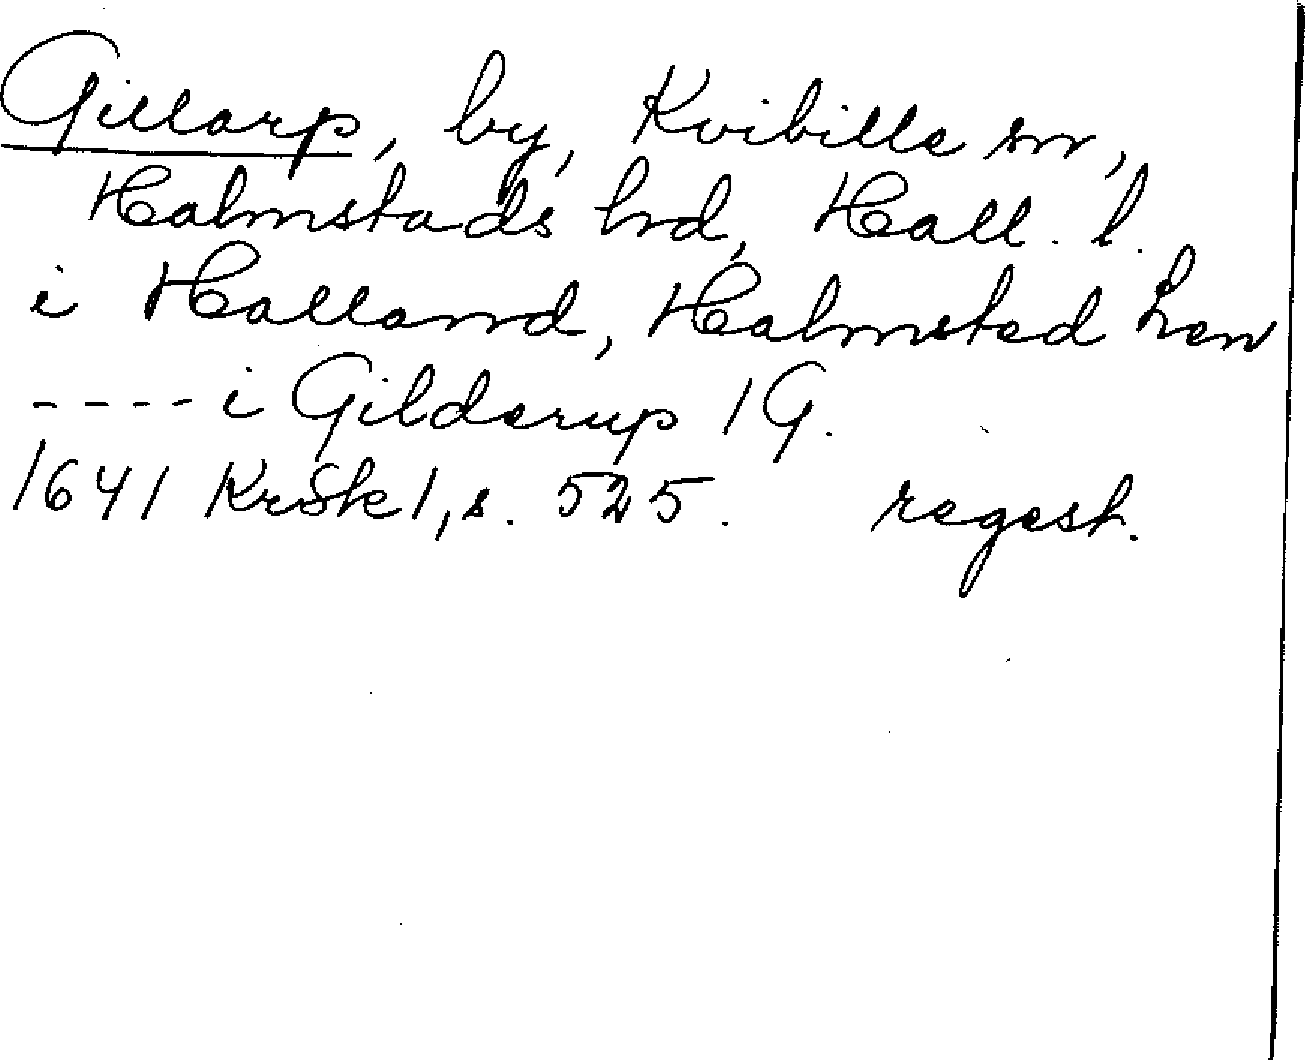 Gillarp, by, Kvibille sn,
Halmstads hd, Hall. l.
i Halland, Halmsted Len
---- i Gilderup 1 G.
1641 KrSk 1, s. 525. regest.